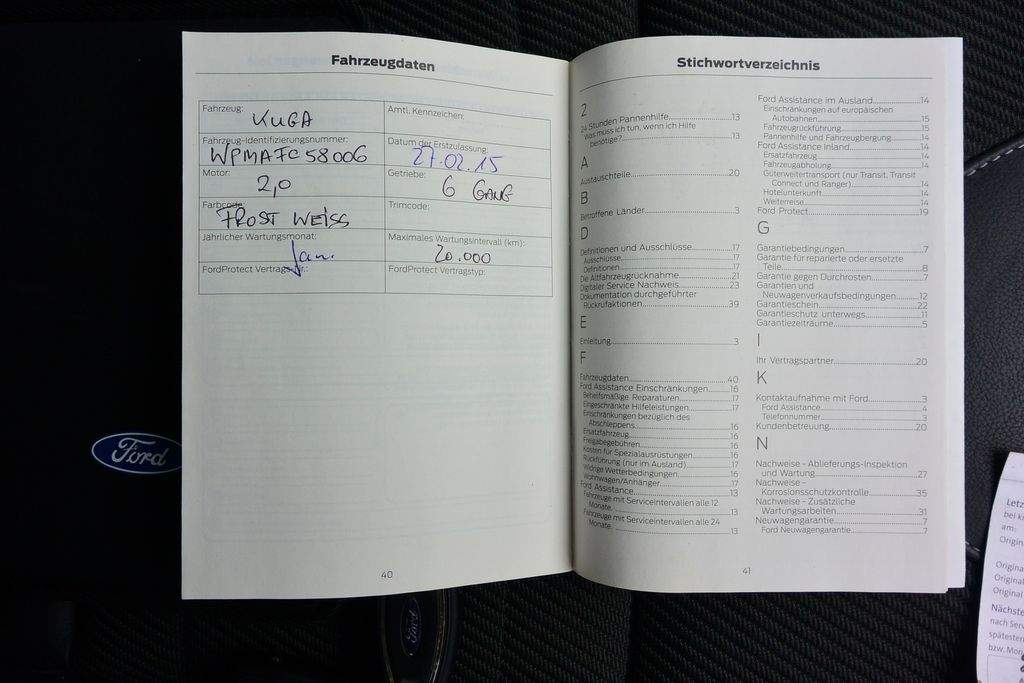 Fahrzeugdaten
Fahrzeug: KUGA
Amtl. Kennzeichen:
Fahrzeug-Identifizierungsnummer: WPMAFC58006
Datum der Erstzulassung: 27.02.15
Motor: 2,0
Getriebe: 6 GANG
Farbcode: FROST WEISS
Trimcode:
Jährlicher Wartungsmonat: Jan.
Maximales Wartungsintervall (km): 20.000
FordProtect Vertrags-Nr.:
FordProtect Vertragstyp:
40
Stichwortverzeichnis
2
24 Stunden Pannenhilfe 13
Was muss ich tun, wenn ich Hilfe
benötige? 13
A
Austauschteile 20
B
Betroffene Länder 3
D
Definitionen und Ausschlüsse 17
Ausschlüsse 17
Definitionen 17
Die Altfahrzeugrücknahme 21
Digitaler Service Nachweis 23
Dokumentation durchgeführter
Rückrufaktionen 39
E
Einleitung 3
F
Fahrzeugdaten 40
Ford Assistance Einschränkungen 16
Behelfsmäßige Reparaturen 17
Eingeschränkte Hilfeleistungen 17
Einschränkungen bezüglich des
Abschleppens 16
Ersatzfahrzeug 16
Freigabegebühren 16
Kosten für Spezialausrüstungen 16
Rückführung (nur im Ausland) 17
Widrige Wetterbedingungen 16
Wohnwagen/Anhänger 17
Ford Assistance 13
Fahrzeuge mit Serviceintervallen alle 12
Monate 13
Fahrzeuge mit Serviceintervallen alle 24
Monate 13
Ford Assistance im Ausland 14
Einschränkungen auf europäischen
Autobahnen 15
Fahrzeugrückführung 15
Pannenhilfe und Fahrzeugbergung 14
Ford Assistance Inland 14
Ersatzfahrzeug 14
Fahrzeugabholung 14
Güterweitertransport (nur Transit, Transit
Connect und Ranger) 14
Hotelunterkunft 14
Weiterreise 14
Ford Protect 19
G
Garantiebedingungen 7
Garantie für reparierte oder ersetzte
Teile 8
Garantie gegen Durchrosten 7
Garantien und
Neuwagenverkaufsbedingungen 12
Garantieschein 22
Garantieschutz unterwegs 11
Garantiezeiträume 5
I
Ihr Vertragspartner 20
K
Kontaktaufnahme mit Ford 3
Ford Assistance 4
Telefonnummer 3
Kundenbetreuung 20
N
Nachweise - Ablieferungs-Inspektion
und Wartung 27
Nachweise -
Korrosionsschutzkontrolle 35
Nachweise - Zusätzliche
Wartungsarbeiten 31
Neuwagengarantie 7
Ford Neuwagengarantie 7
41
Ford
Ford
Letz
bei k
am:
Origin
Origina
Original
Original
Nächste
nach Serv
spätesten
bzw. Mon